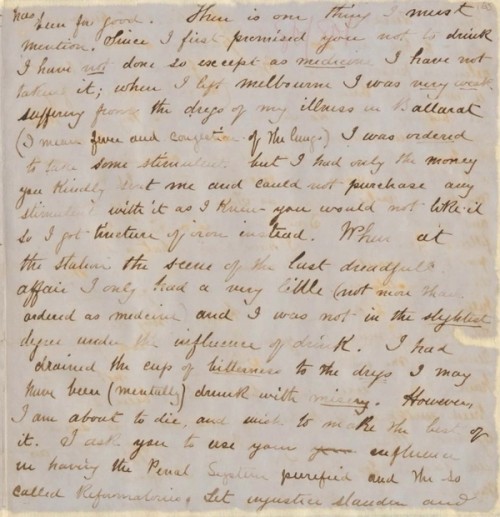 has been for good. There is one thing I must
mention. Since I first promised you not to drink
I have not done so except as medicine I have not
taken it; when I left Melbourne I was very weak
suffering from the dregs of my illness in Ballarat
(I mean fever and congestn of the lungs) I was ordered
to take some stimulent. but I had only the money
you kindly sent me and could not purchase any
stimulent with it as I knew you would not like it
so I got tincture of iron instead. When at
the station the scene of the last dreadfull
affair I only had a very little (not more than
ordered as medicine) and I was not in the slightest
degree under the influence of drink. I had
drained the cup of bitterness to the dregs I may
have been (mentally) drunk with misery. However,
I am about to die, and wish to make the best of
it. I ask you to use your influence
in having the Penal System purified and the so
called Reformatories. Let injustice slander and